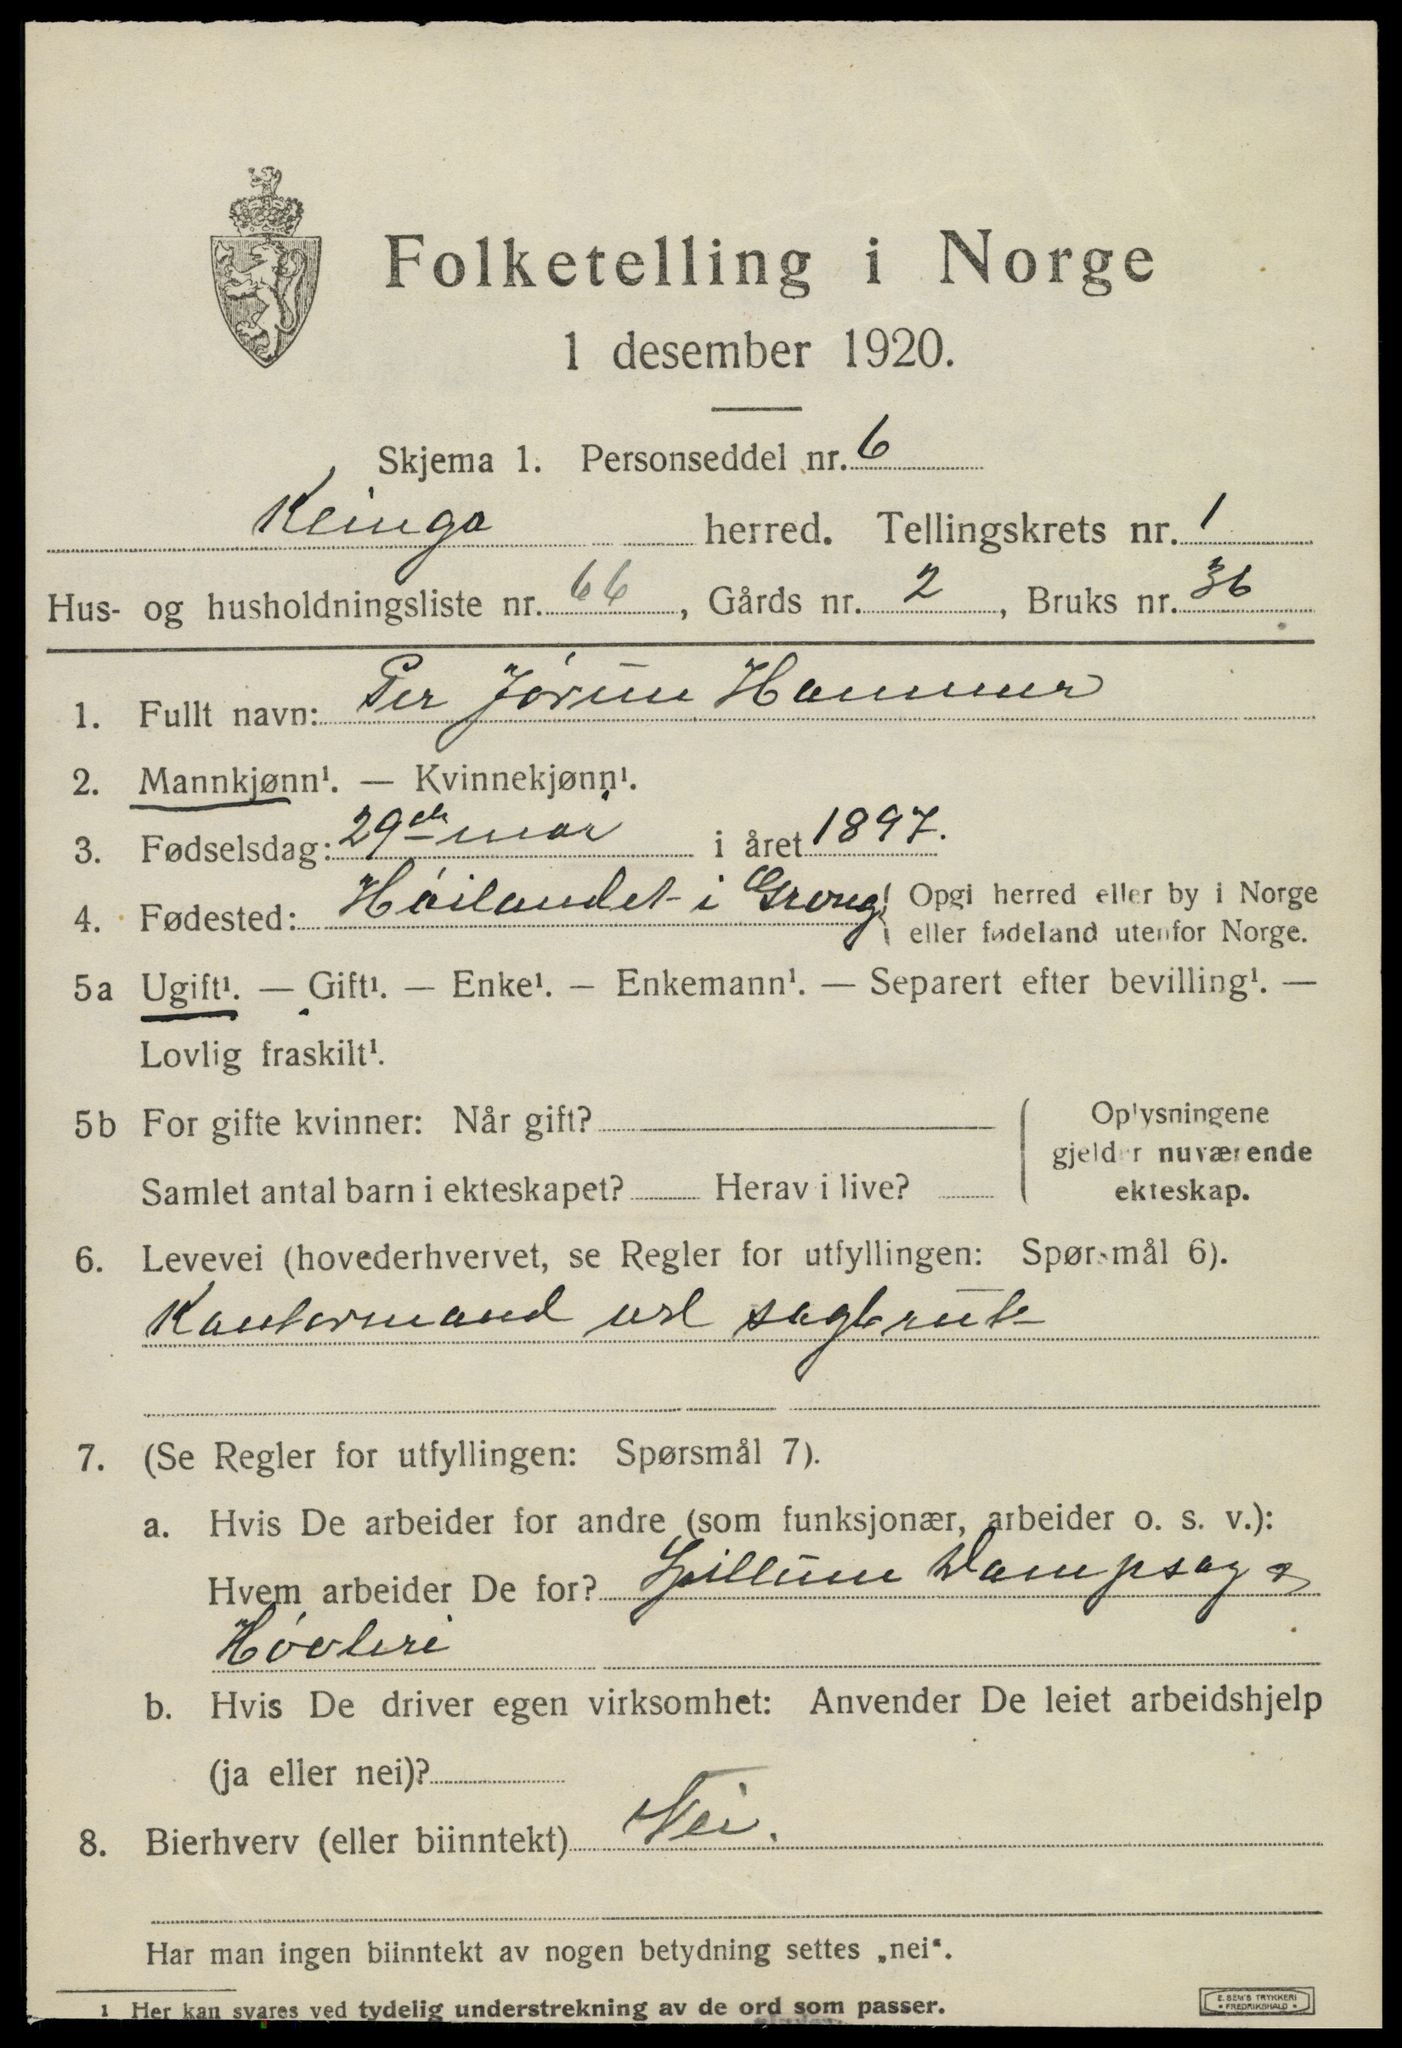 Folketelling i Norge
1 desember 1920.
Skjema 1. Personseddel nr. 6
Klinga herred. Tellingskrets nr. 1
Hus- og husholdningsliste nr. 66, Gårds nr. 2, Bruks nr. 36
1. Fullt navn: Per Jörum Hammer
2. Mannkjønn¹. — Kvinnekjønn¹.
3. Fødselsdag: 29de mai i året 1897.
4. Fødested: Høilandet i Grong { Opgi herred eller by i Norge
eller fødeland utenfor Norge.
5a Ugift¹. — Gift¹. — Enke¹. — Enkemann¹. — Separert efter bevilling¹. —
Lovlig fraskilt¹.
5b For gifte kvinner: Når gift?
Samlet antal barn i ekteskapet? Herav i live?
Oplysningene
gjelder nuværende
ekteskap.
6. Levevei (hovederhvervet, se Regler for utfyllingen: Spørsmål 6).
Kontormand ved sagbruk
7. (Se Regler for utfyllingen: Spørsmål 7).
a. Hvis De arbeider for andre (som funksjonær, arbeider o. s. v.):
Hvem arbeider De for? Spillum Dampsag &
Høvleri
b. Hvis De driver egen virksomhet: Anvender De leiet arbeidshjelp
(ja eller nei)?
8. Bierhverv (eller biinntekt) Nei.
Har man ingen biinntekt av nogen betydning settes „nei“.
1 Her kan svares ved tydelig understrekning av de ord som passer.
E. SEM'S TRYKKERI
• FREDRIKSHALD •